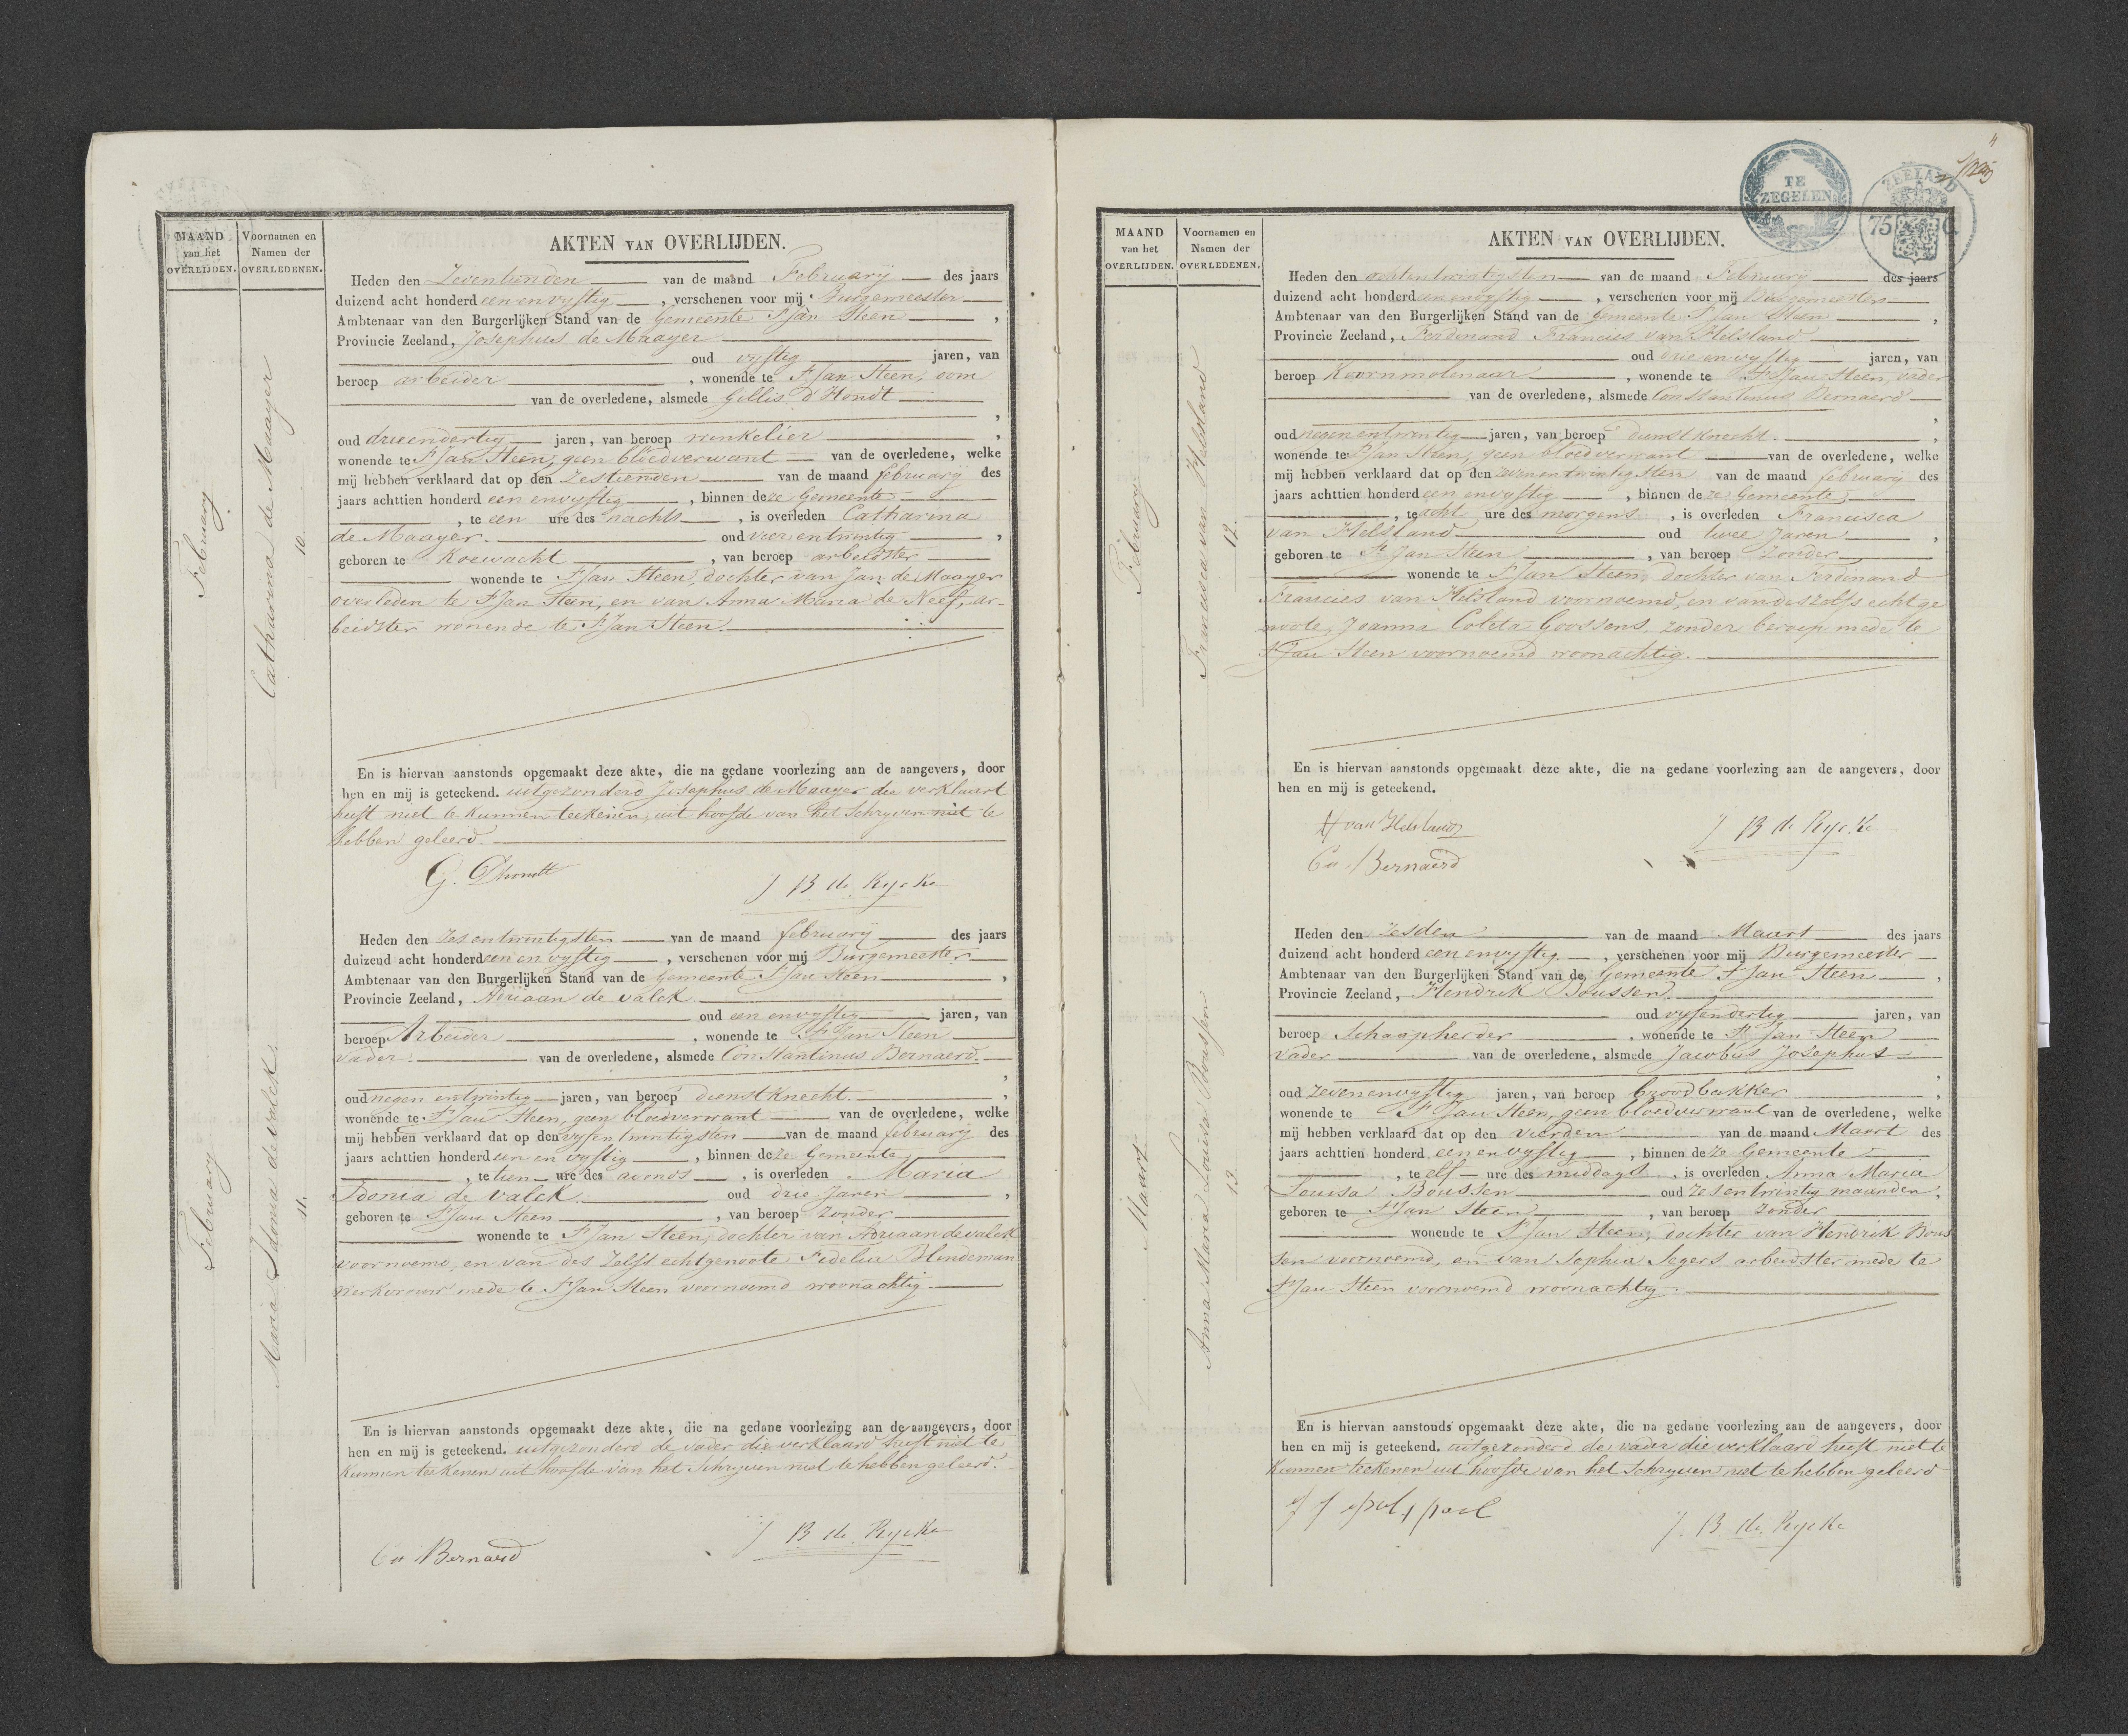 MAAND
van het
OVERLIJDEN.
Voornamen en
Namen der
OVERLEDENEN.
February
Catharina de Maayer
10.
AKTEN VAN OVERLIJDEN.
Heden den Zeventienden van de maand February des jaars
duizend acht honderd een en vyftig , verschenen voor mij Burgemeester
Ambtenaar van den Burgerlijken Stand van de Gemeente St Jan Steen ,
Provincie Zeeland, Josephus de Maayer
oud vyftig jaren, van
beroep arbeider , wonende te St Jan Steen, oom
van de overledene, alsmede Gillis D'Hondt
,
oud drieendertig jaren, van beroep winkelier ,
wonende te St Jan Steen, geen bloedverwant van de overledene, welke
mij hebben verklaard dat op den Zestienden van de maand february des
jaars achttien honderd een envyftig , binnen deze Gemeente
, te een ure des nachts , is overleden Catharina
de Maayer. oud vier entwintig ,
geboren te Koewacht , van beroep arbeidster
wonende te St Jan Steen, dochter van Jan de Maayer
overleden te St Jan Steen, en van Anna Maria de Neef, ar-
beidster wonende te St Jan Steen.
En is hiervan aanstonds opgemaakt deze akte, die na gedane voorlezing aan de aangevers, door
hen en mij is geteekend. uitgezonderd Josephus de Maayer die verklaard
heeft niet te kunnen teekenen, uit hoofde van het Schryven niet te
hebben geleerd.
G. Dhondt
J B de Rycke
February
Maria Idonia de valck.
11.
Heden den Zes entwintigsten van de maand february des jaars
duizend acht honderd een en vyftig , verschenen voor mij Burgemeester
Ambtenaar van den Burgerlijken Stand van de Gemeente St Jan Steen ,
Provincie Zeeland, Adriaan de valck
oud een envyftig jaren, van
beroep Arbeider , wonende te St Jan Steen
vader. van de overledene, alsmede Constantinus Bernaerd.
,
oud negen entwintig jaren, van beroep dienstknecht. ,
wonende te St Jan Steen, geen bloedverwant van de overledene, welke
mij hebben verklaard dat op den vyfentwintigsten van de maand february des
jaars achttien honderd een en vyftig , binnen deze Gemeente
, te tien ure des avonds , is overleden Maria
Idonia de valck. oud drie Jaren ,
geboren te St Jan Steen , van beroep zonder
wonende te St Jan Steen, dochter van Adriaan de valck
voornoemd, en van des Zelfs echtgenoote Fidelia Blindeman
werkvrouw mede te St Jan Steen voornoemd woonachtig.
En is hiervan aanstonds opgemaakt deze akte, die na gedane voorlezing aan de aangevers, door
hen en mij is geteekend. uitgezonderd de vader die verklaard heeft niet te
kunnen teekenen uit hoofde van het Schryven niet te hebben geleerd.
Co Bernaerd
J B de Rycke
4
TE
ZEGELEN
ZEELAND
75 C.
MAAND
van het
OVERLIJDEN.
Voornamen en
Namen der
OVERLEDENEN.
February
Francisca van Helsland
12.
AKTEN VAN OVERLIJDEN.
Heden den achtentwintigsten van de maand February des jaars
duizend acht honderd een envyftig , verschenen voor mij Burgemeester
Ambtenaar van den Burgerlijken Stand van de Gemeente St Jan Steen ,
Provincie Zeeland, Ferdinand Francies van Helsland
oud drie en vyftig jaren, van
beroep Koornmolenaar , wonende te St Jan Steen, vader
van de overledene, alsmede Constantinus Bernaerd
,
oud negen entwintig jaren, van beroep dienstknecht. ,
wonende te St Jan Steen, geen bloedverwant van de overledene, welke
mij hebben verklaard dat op den zeven entwintigsten van de maand february des
jaars achttien honderd een envyftig , binnen deze Gemeente
, te acht ure des morgens , is overleden Francisca
van Helsland oud twee Jaren ,
geboren te St Jan Steen , van beroep zonder
wonende te St Jan Steen, dochter van Ferdinand
Francies van Helsland voornoemd, en van deszelfs echtge
noote, Joanna Coleta Goossens, zonder beroep mede te
St Jan Steen voornoemd woonachtig.
En is hiervan aanstonds opgemaakt deze akte, die na gedane voorlezing aan de aangevers, door
hen en mij is geteekend.
van Helsland
Co Bernaerd
J B de Rycke
Maart
Anna Maria Louisa Boussen
13.
Heden den Zesden van de maand Maart des jaars
duizend acht honderd een envyftig , verschenen voor mij Burgemeester
Ambtenaar van den Burgerlijken Stand van de Gemeente St Jan Steen ,
Provincie Zeeland, Hendrik Boussen
oud vyfendertig jaren, van
beroep Schaapherder , wonende te St Jan Steen
vader van de overledene, alsmede Jacobus Josephus
,
oud Zevenenvyftig jaren, van beroep broodbakker ,
wonende te St Jan Steen, geen bloedverwant van de overledene, welke
mij hebben verklaard dat op den vierden van de maand Maart des
jaars achttien honderd een envyftig , binnen deze Gemeente
, te elf ure des middags , is overleden Anna Maria
Louisa Boussen oud zes entwintig maanden,
geboren te St Jan Steen , van beroep zonder
wonende te St Jan Steen, dochter van Hendrik Bous
sen voornoemd, en van Sophia Segers arbeidster mede te
St Jan Steen voornoemd woonachtig.
En is hiervan aanstonds opgemaakt deze akte, die na gedane voorlezing aan de aangevers, door
hen en mij is geteekend. uitgezonderd de vader die verklaard heeft niet te
kunnen teekenen uit hoofde van het Schryven niet te hebben geleerd
J. B. de Rycke